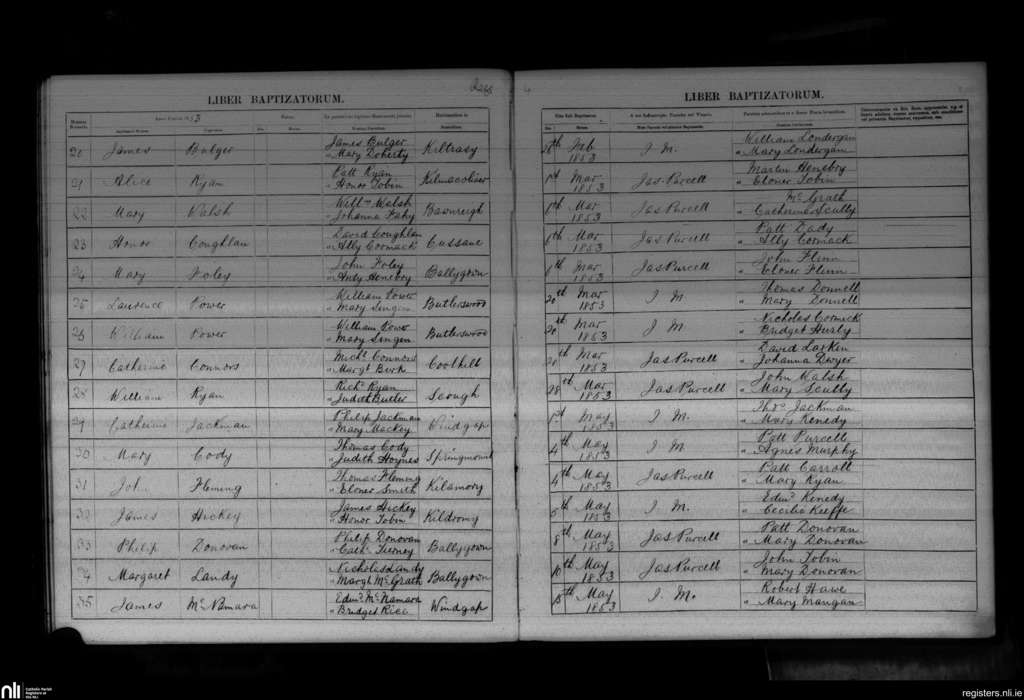 LIBER BAPTIZATORUM.
20 James Bulger James Bulger Kiltrasy
" Mary Doherty
21 Alice Ryan Patt Ryan Kilmacoliver
" Honor Tobin
22 Mary Walsh Willm Walsh Bawnreigh
" Johanna Fahy
23 Honor Coughlan David Coughlan Cussane
" Ally Cormack
24 Mary Foley John Foley Ballygown
" Anty Henebry
25 Laurence Power William Power Butlerswood
" Mary Singen
26 William Power William Power Butlerswood
" Mary Singen
27 Catherine Connors Michl Connors Coolhill
" Margt Birk
28 William Ryan Richd Ryan Scough
" Judith Butler
29 Catherine Jackman Philip Jackman Windgap
" Mary Mackey
30 Mary Cody Thomas Cody Springmount
" Judith Hoynes
31 Joh Fleming Thomas Fleming Kilamory
" Eloner Smith
32 James Hickey James Hickey Kildromy
" Honor Tobin
33 Philip Donovan Philip Donovan Ballygown
" Cath. Tierney
34 Margaret Landy Nicholas Landy Ballygown
" Margt McGrath
35 James McNamara Edwd McNamara Windgap
" Bridget Rice
LIBER BAPTIZATORUM.
Feb 1853 J M. William Londergan
" Mary Londergan
1st Mar 1853 Jas Purcell Martin Henebry
" Eloner Tobin
Mar 1853 Jas Purcell McGrath
" Catherine Scully
6th Mar 1853 Jas Purcell Patt Dady
" Ally Cormack
Mar 1853 Jas Purcell John Flinn
" Eloner Flinn
20th Mar 1853 J M Thomas Donnell
" Mary Donnell
20th Mar 1853 J M. Nicholas Cormick
" Bridget Hurly
Mar 1853 Jas Purcell David Larken
" Johanna Dwyer
28th Mar 1853 Jas Purcell John Walsh
" Mary Scully
1st May 1853 J M. Thos Jackman
" Mary Kenedy
4th May 1853 J M. Patt Purcell
" Agnes Murphy
4th May 1853 Jas Purcell Patt Carroll
" Mary Ryan
5th May 1853 J M. Edwd Kenedy
" Cecilia Keeffe
8th May 1853 Jas Purcell Patt Donovan
" Mary Donovan
10th May 1853 Jas Purcell John Tobin
" Mary Donovan
15th May 1853 J M. Robert Hawe
" Mary Mangan
nli Catholic Parish Registers at the NLI
registers.nli.ie